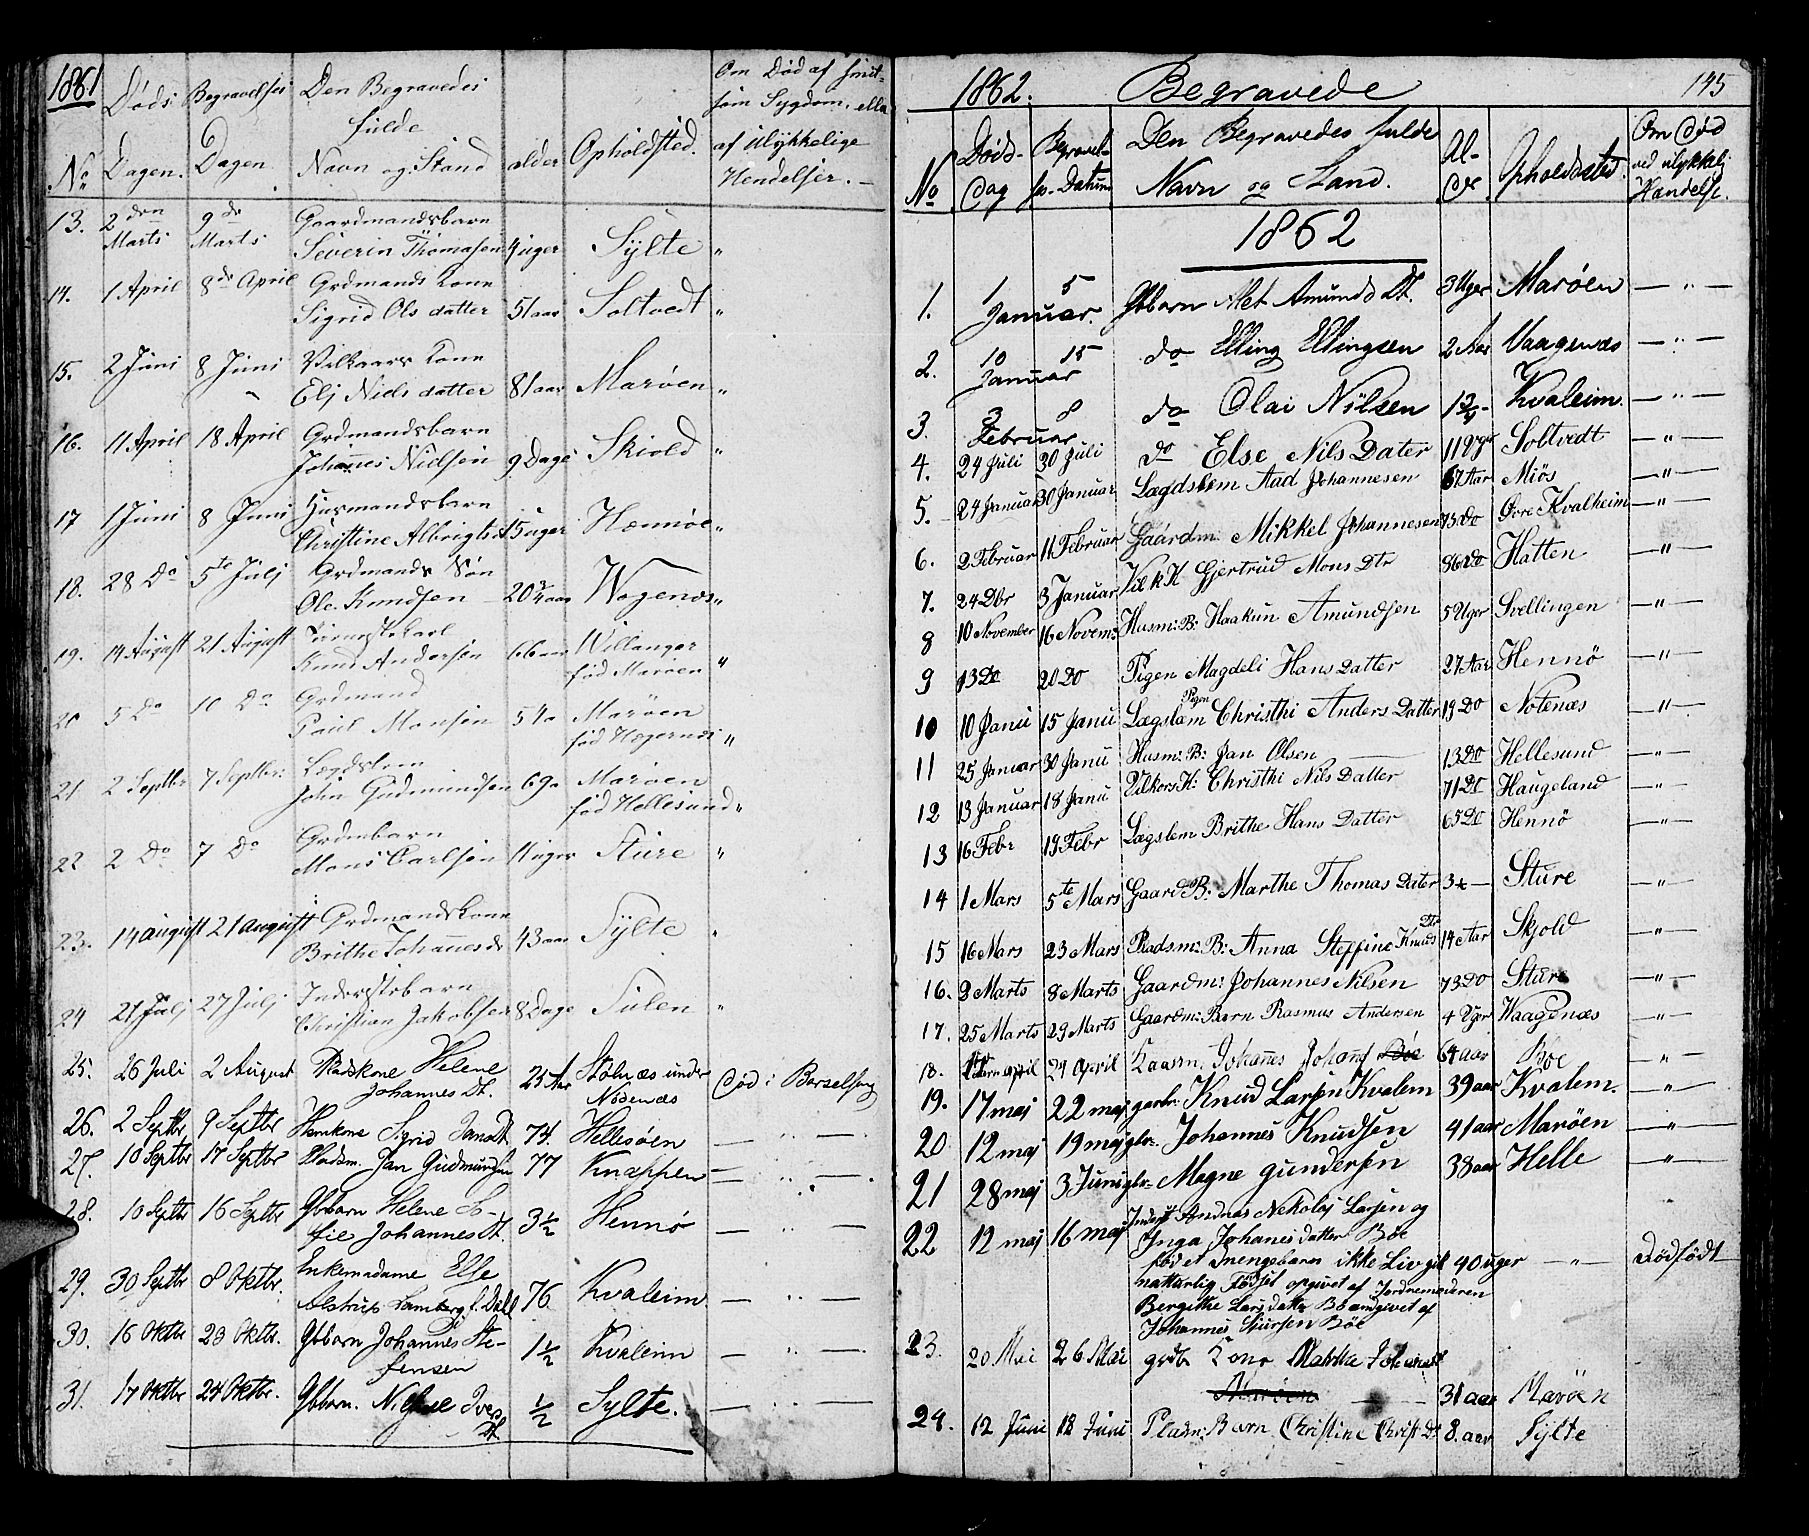 1861
Døds Dagen. Begravelses Dagen Den Begravedes fulde Navn og Stand alder Opholdsted. Om Død af smitsom Sygdom, eller af Ulykkelige Hendelser. —
No
13. 2den Marts 9de Marts Gaardmandsbarn
Severin Thomasen 4 uger Sylte "
14. 1 April 8de April Grdmands Kone
Sigrid Ols datter 51 aar Soltvedt "
15. 2 Juni 8 Juni Vilkaars Kone
Elj Niels datter 81 aar Marøen "
16. 11 April 18 April Grdmandsbarn
Johannes Nielsen 9 Dage Skiold "
17 1 Juni 8 Juni Husmandsbarn
Christine Albrigtsd 15 uger Hæmøe "
18. 28 Do 5te Julj Grdmands Søn
Ole Knudsen 20 3/4 aar Wogenæs "
19. 14 August 21 August
Knud Andersen 66 aar Willanger
fød Marøen "
20 5 Do 10 Do Grdmand
Paul Monsen 54 a Marøen
fød Hægernæs "
21 2 Septbr 7 Septbr: Lægdslem
John Gudmundsen 69 a Marøen
fød Hellesund "
22 2 Do 7 Do Grdmbarn
Mons Carlsen 11 uger Sture "
23. 14 august 21 august Grdmandskone
Brithe Johannesdr 43 aar Sylte "
24 21 Julj 27 Julj Inderstebarn
Christian Jakobsen 8 Dage Sulen "
25. 26 Juli 2 August Pladskone Helene
Johannes Dt. 25 Aar Stølnæs under
Nødenæs Død i Barselseng
26. 2 Septbr 9 Septbr Sigrid Jansdt. 74. Hellesøen — " —
27. 10 Septbr 17 Septbr Pladsm. Jan Gudmundsen 77 Knappen — " —
28. 10 Septbr 16 Septbr Gbbarn Helene So-
fie Johannes Dt. 3 1/2 Hennø — " —
29. 30 Septbr 8 Oktbr. Enkemadame Else
Alstrup Lamberg f. Dahl 76. Kvaleim — " —
30. 16 Oktbr 23 Oktbr. Gbbarn Johannes Ste-
fensen 1 1/2 Kvaleim — " —
31. 17 Oktbr 24 Oktbr. Gbbarn. Iver
Dt. 1/2 Sylte. — " —
1862. Begravede 145
No Døds- Dag Begravel- se- Datum Den Begravedes fulde Navn og Stand. Al- der Opholdssted. Om Død ved ulykkelj Hændelse.
1862
1. 1 Januar. 5 Gbbarn Alet Amunds Dt. 3 Uger Marøen — " —
2. 10 Januar 15 do Elling Ellingsen 2 Aar Vaagenæs — " —
3. 3 Februar 8 do Olai Nilsen Kvaleim. — " —
4. 24 Juli 30 Juli do Else Nils Dater 11 Uger Soltvedt — " —
5. 24 Januar 30 Januar Lægdslem Aad Johannesen 67 Aar Miøs — " —
6. 2 Februar 11 Februar Gaardm: Mikkel Johannesen 73 Do Øvre Kvalheim — " —
7. 24 Dbr 3 Januar Vilk K Gjertrud Mons Dtr 86 Do Hatten — " —
8 10 November 16 Novem: Husm: B: Haakun Amundsen 5 Uger Svellingen — " —
9 13 Do 20 Do Pigen Magdeli Hans Datter 27 Aar Hennö — " —
10 10 Janu 15 Janu Lægslem Pigen Christhi Anders Datter 19 Do Notenæs — " —
11 25 Januar 30 Janu Husm: B: Jan Olsen — 13 Do Hellesund — " —
12 13 Januar 18 Janu Vilkors K: Christhi Nils Datter 71 Do Haugeland — " —
13 16 Febr 19 Febr Lægslem Brithe Hans Datter 65 Do Hennö — " —
14 1 Mars 5te Mars Gaard B: Marthe Thomas Dater Sture — " —
15 16 Mars 23 Mars Pladsm: B: Anna Steffine Knuds Dtr 14 Aar Skjold — " —
16. 3 Marts 8 Marts Gaardm: Johannes Nilsen 73 Do Sture — " —
17. 25 Marts 29 Marts Gaardm: Barn Rasmus Andersen 4 Uger Waagenæs — " —
18. april 29 April Johannes Bøe 64 aar Bøe — " —
19. 17 maj 22 maj garbr. Knud Larsen Kvalem 39 aar Kvalem. — " —
20 12 maj 19 maj gbr. Johannes Knudsen 41 aar Marøen — " —
21 28 maj 3 Juni gbr Magne gundersen 38 aar Helle — " —
22 12 maj 16 maj Inderst Andreas Nekolaj Larsen og
Inga Johanesdatter Bøe
fød et Drengebarn ikke Livgit 40 uger — " — Dødfødt
nattarlig Fødsel opgivet af Jordemoderen
Bergithe Larsdatter Bø angivet af
Johannes Bøe
23. 20 Mai 26 Mai grdb. Kone Marthe Johannesd
Marøen 31 aar Marøen
24. 12 Juni 18 Juni Pladsm: Barn Christine Christ Dt 8. aar Sylte